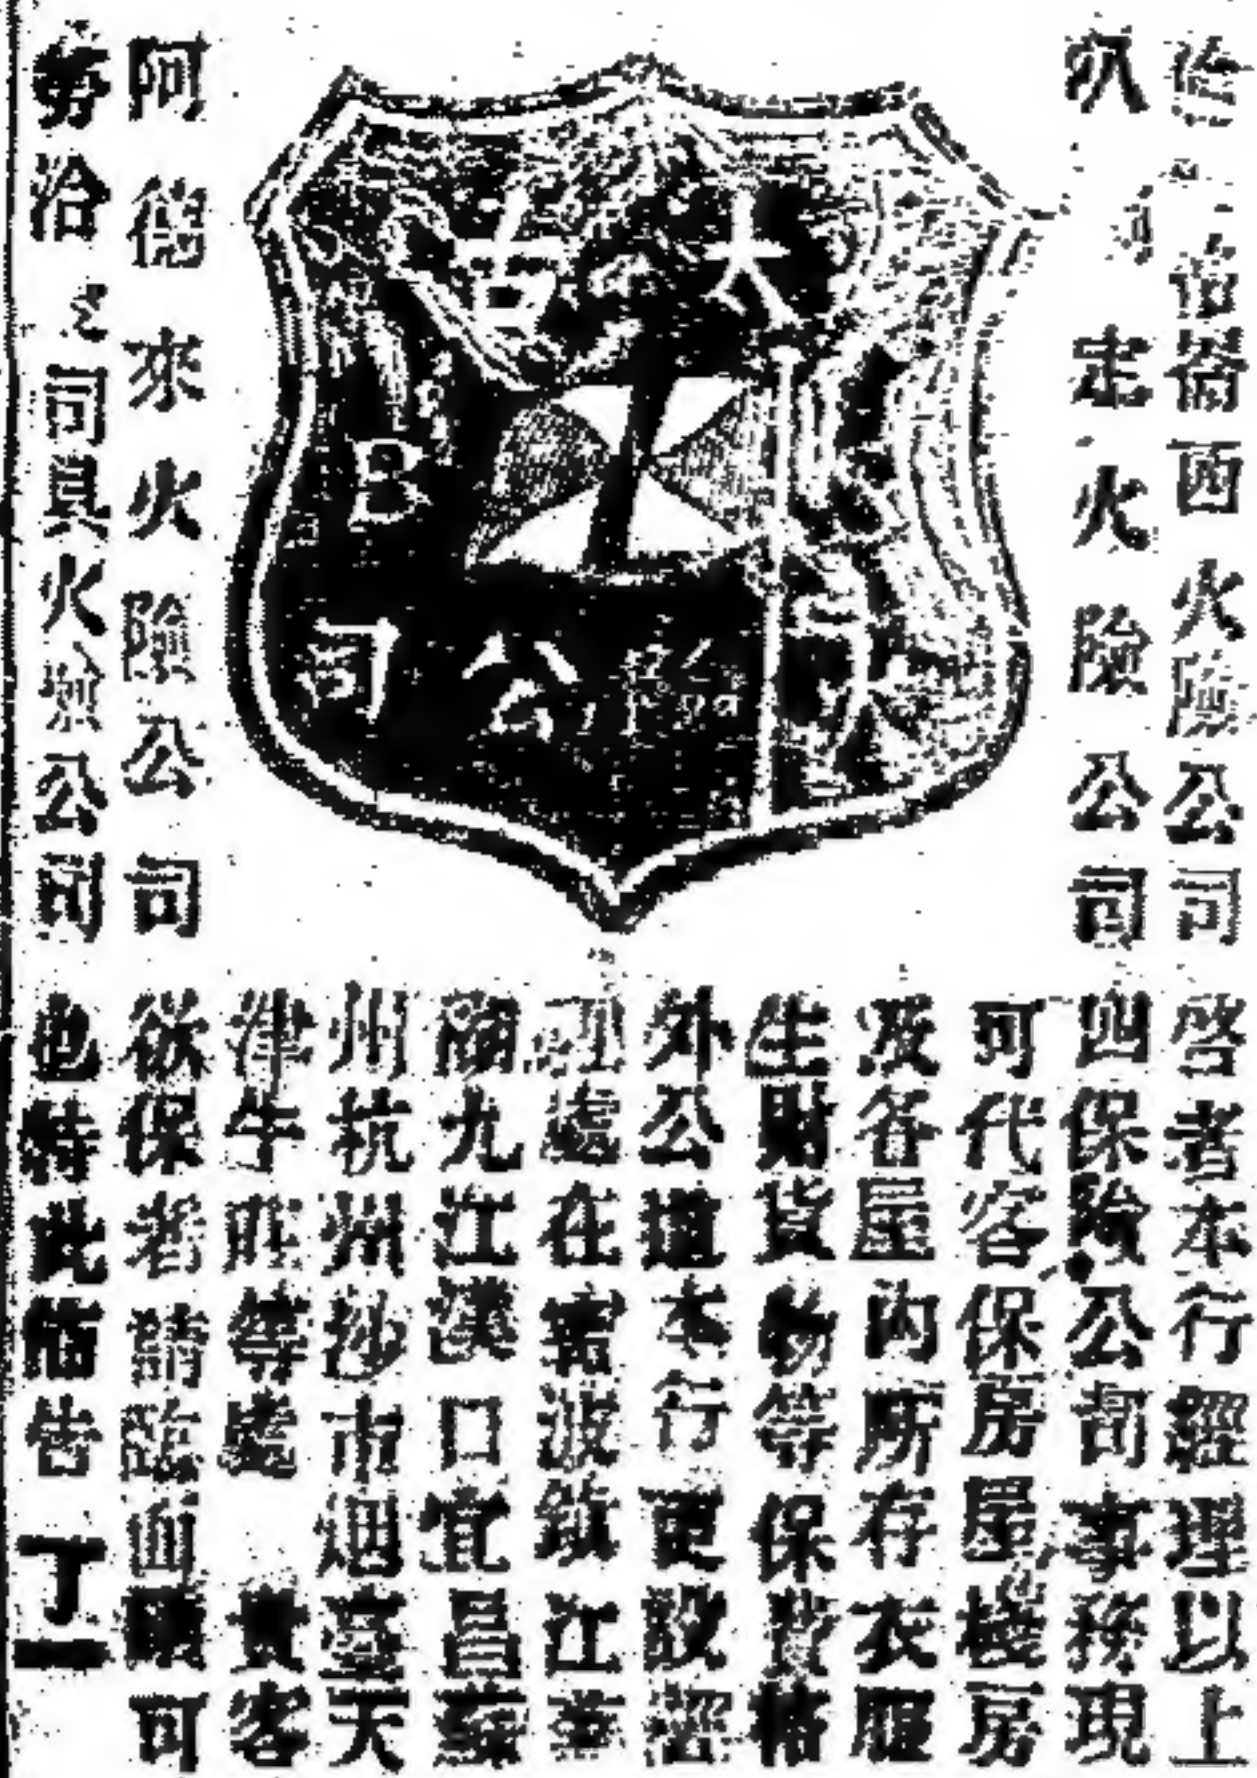 西火險公司
火險公司
太古
B
公司
阿德來火險公司
之司具火險公司
啓者本行經理以上
四保險公司事務現
可代客保房屋棧房
及各屋內所存衣服
生財貨物等保費格
外公道本行更設經
理處在甯波鎮江蕪
湖九江漢口宜昌蘇
州杭州沙市烟臺天
津牛莊等處 貴客
欲保者請臨面議可
也特此佈告 丁一